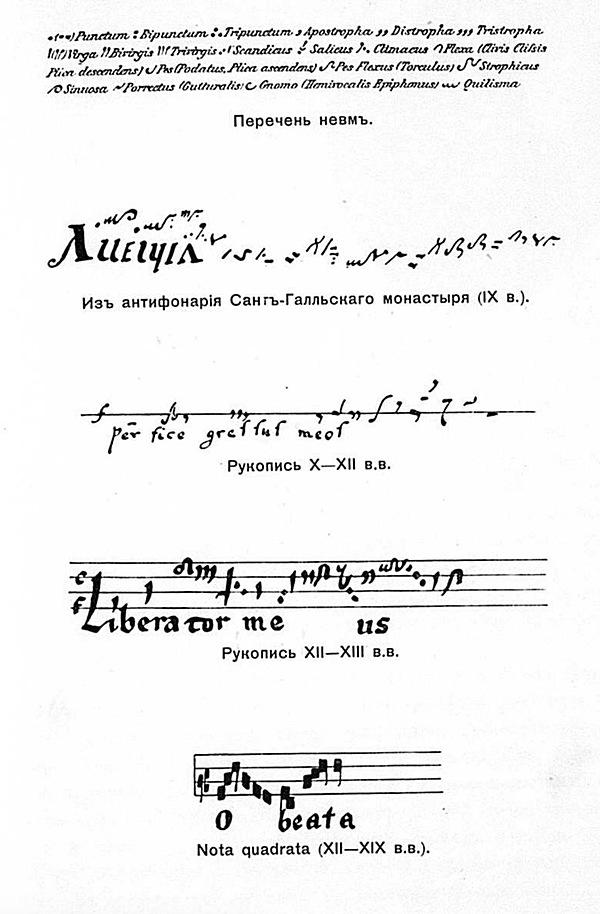 Punctum Bipunctum Tripunctum Apostropha Distropha Tristropha
Virga Bivirgis Trivirgis Scandicus Salicus Climacus Flexa (Clivis Clisis
Plica descendens) Pes (Podatus, Plica ascendens) Pes Flexus (Torculus) Strophicus
Sinuosa Porrectus (Gutturalis) Gnomo (Semivocalis Epiphonus) Quilisma
Перечень невмъ.
Изъ антифонарія Сангъ-Галльскаго монастыря (IX в.).
per fice gressus meos
Рукопись X—XII в.в.
Liberator me us
Рукопись XII—XIII в.в.
O beata
Nota quadrata (XII—XIX в.в.).